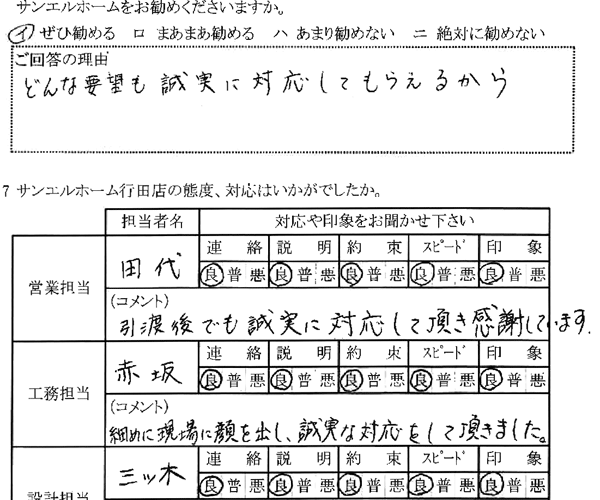 サンエルホームをお勧めくださいますか。
イ ぜひ勧める ロ まあまあ勧める ハ あまり勧めない ニ 絶対に勧めない
ご回答の理由
どんな要望も誠実に対応してもらえるから
7 サンエルホーム行田店の態度、対応はいかがでしたか。
担当者名 対応や印象をお聞かせ下さい
営業担当 田代 連絡 説明 約束 スピード 印象
良 普 悪 良 普 悪 良 普 悪 良 普 悪 良 普 悪
(コメント)
引渡後でも誠実に対応して頂き感謝しています。
工務担当 赤坂 連絡 説明 約束 スピード 印象
良 普 悪 良 普 悪 良 普 悪 良 普 悪 良 普 悪
(コメント)
細めに現場に顔を出し、誠実な対応をして頂きました。
設計担当 三ッ木 連絡 説明 約束 スピード 印象
良 普 悪 良 普 悪 良 普 悪 良 普 悪 良 普 悪